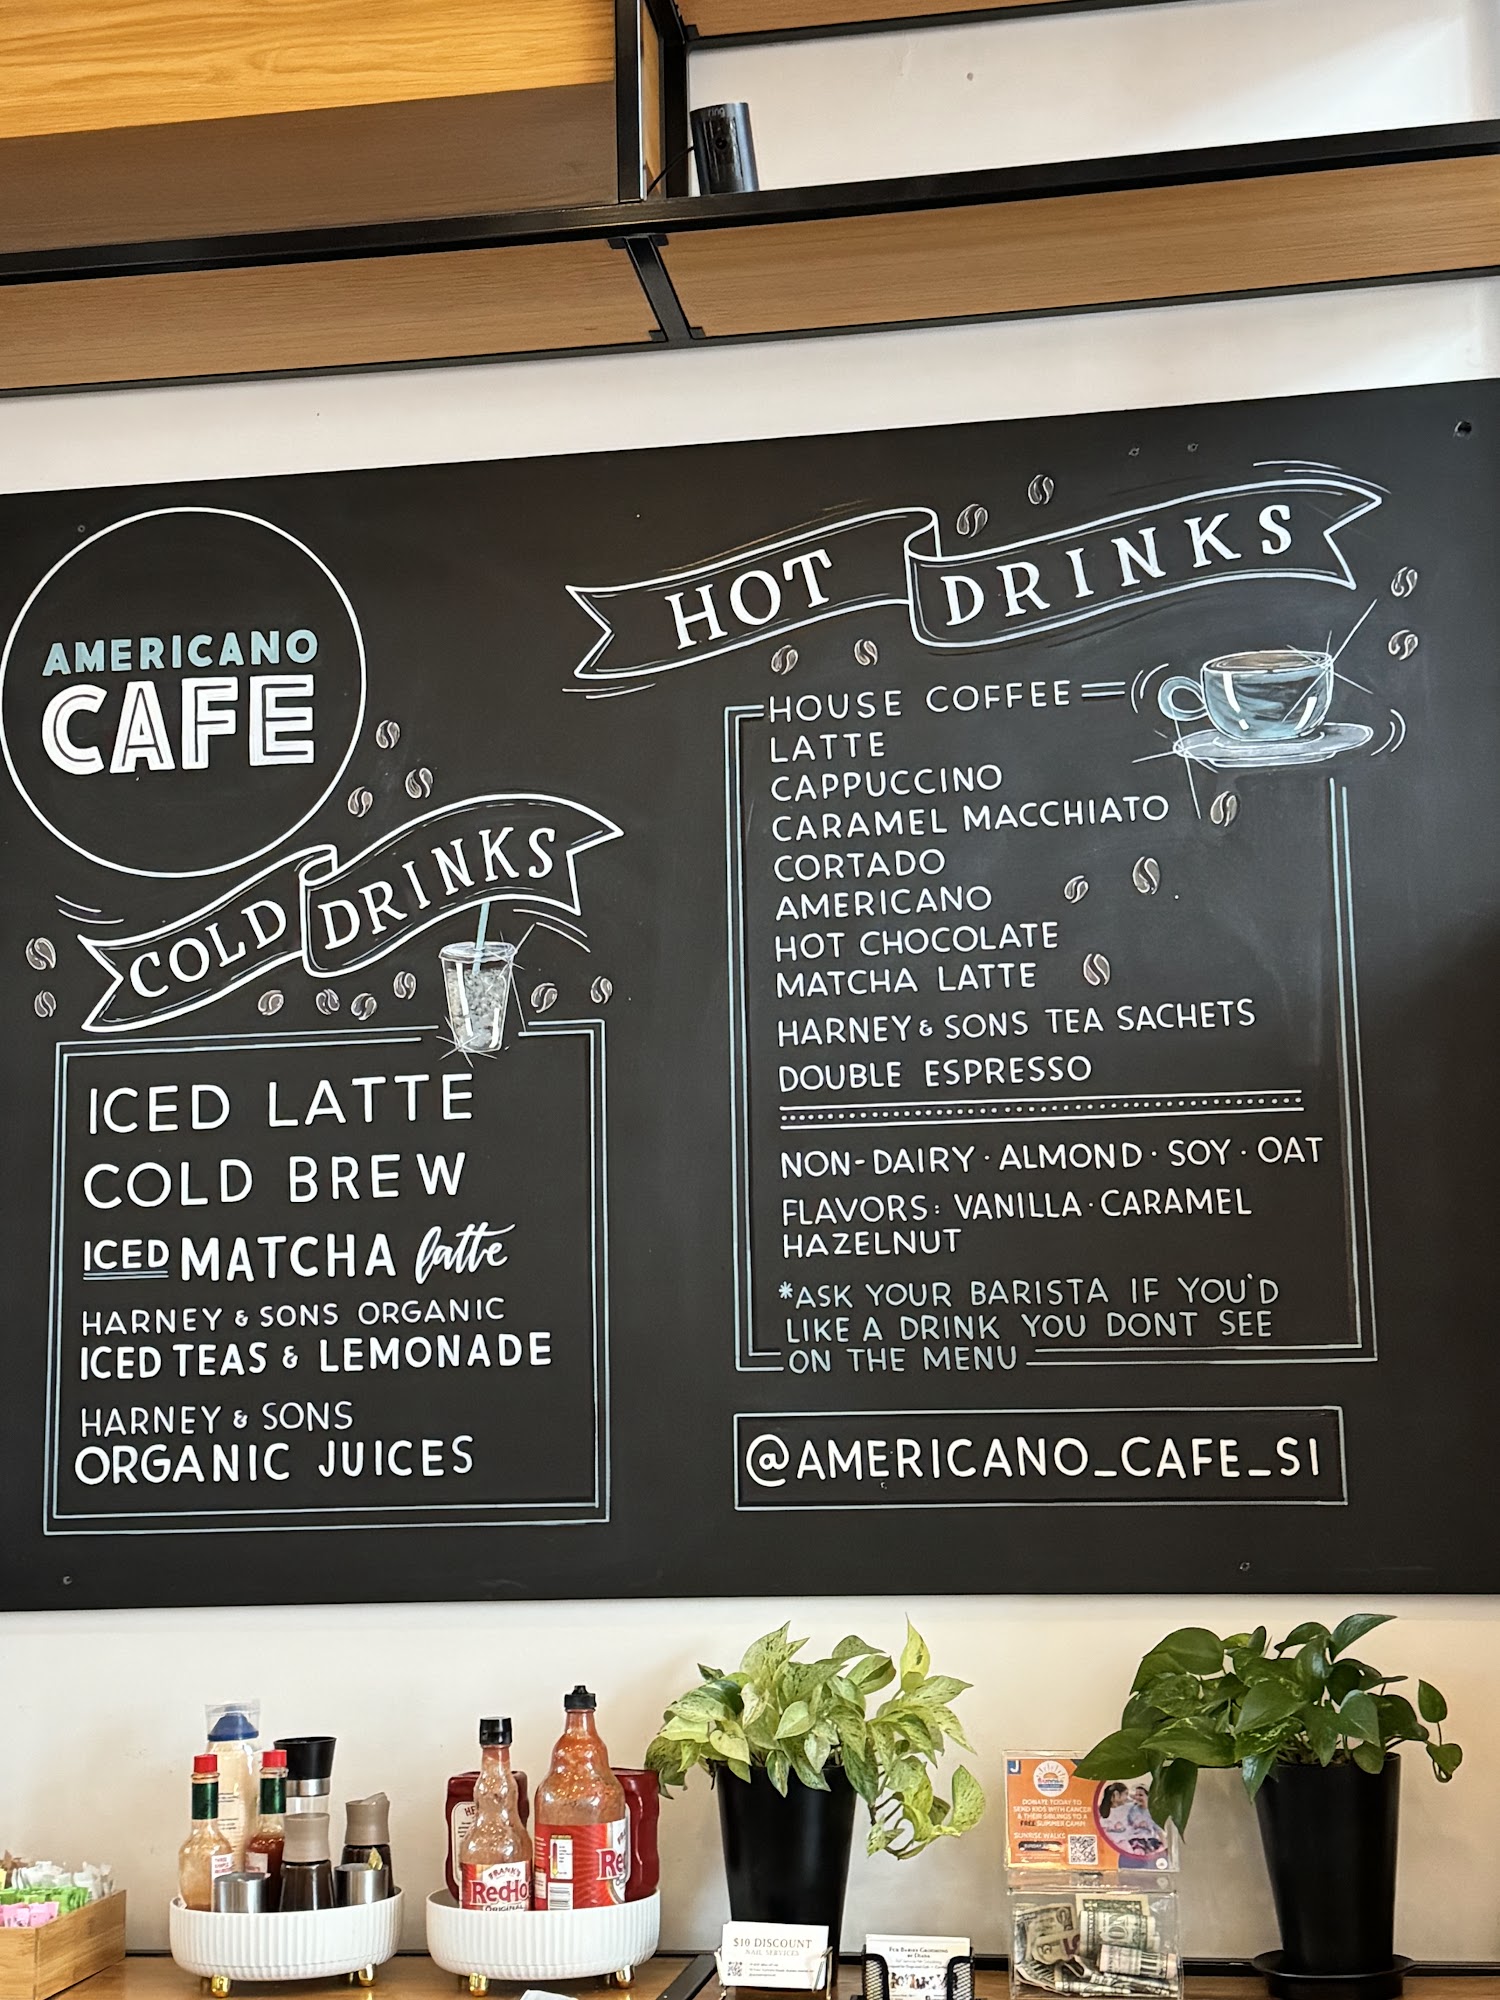 ring
AMERICANO
CAFE
COLD DRINKS
ICED LATTE
COLD BREW
ICED MATCHA latte
HARNEY & SONS ORGANIC
ICED TEAS & LEMONADE
HARNEY & SONS
ORGANIC JUICES
HOT DRINKS
HOUSE COFFEE
LATTE
CAPPUCCINO
CARAMEL MACCHIATO
CORTADO
AMERICANO
HOT CHOCOLATE
MATCHA LATTE
HARNEY & SONS TEA SACHETS
DOUBLE ESPRESSO
NON-DAIRY · ALMOND · SOY · OAT
FLAVORS: VANILLA · CARAMEL
HAZELNUT
*ASK YOUR BARISTA IF YOU'D
LIKE A DRINK YOU DONT SEE
ON THE MENU
@AMERICANO_CAFE_SI
FRANK'S
RedHo
ORIGINAL
Re
$10 DISCOUNT
NAIL SERVICES
J
DONATE TODAY TO
SEND KIDS WITH CANCER
& THEIR SIBLINGS TO A
FREE SUMMER CAMP!
SUNRISE WALKS